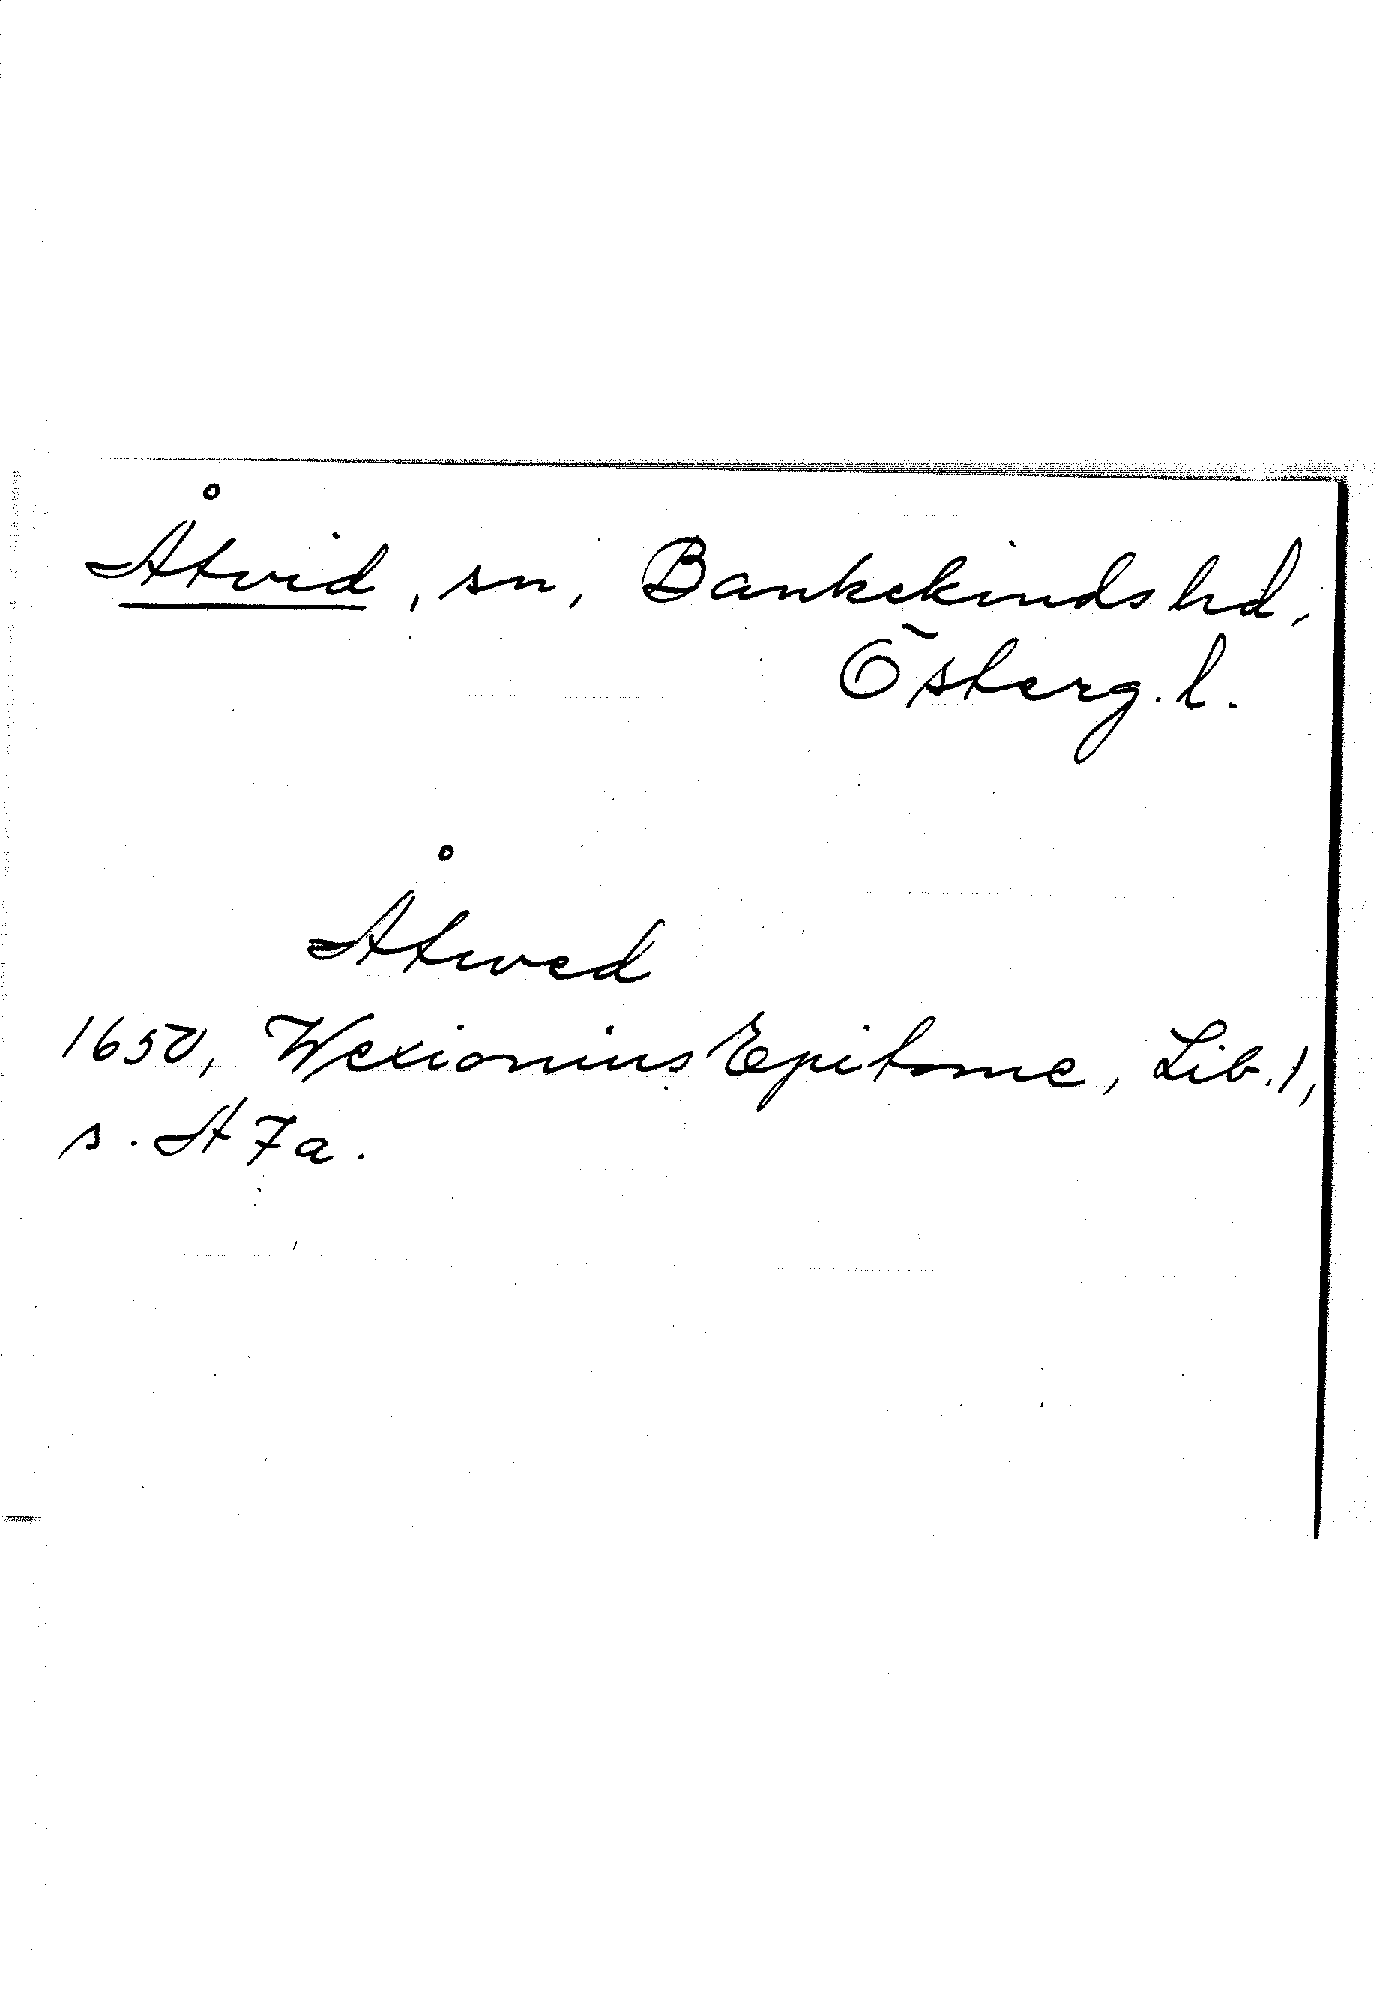 Åtvid, sn, Bankekinds hd,
Österg. l.
Åtwed
1650, Wexionius Epitome, Lib. 1,
s. A 7a.